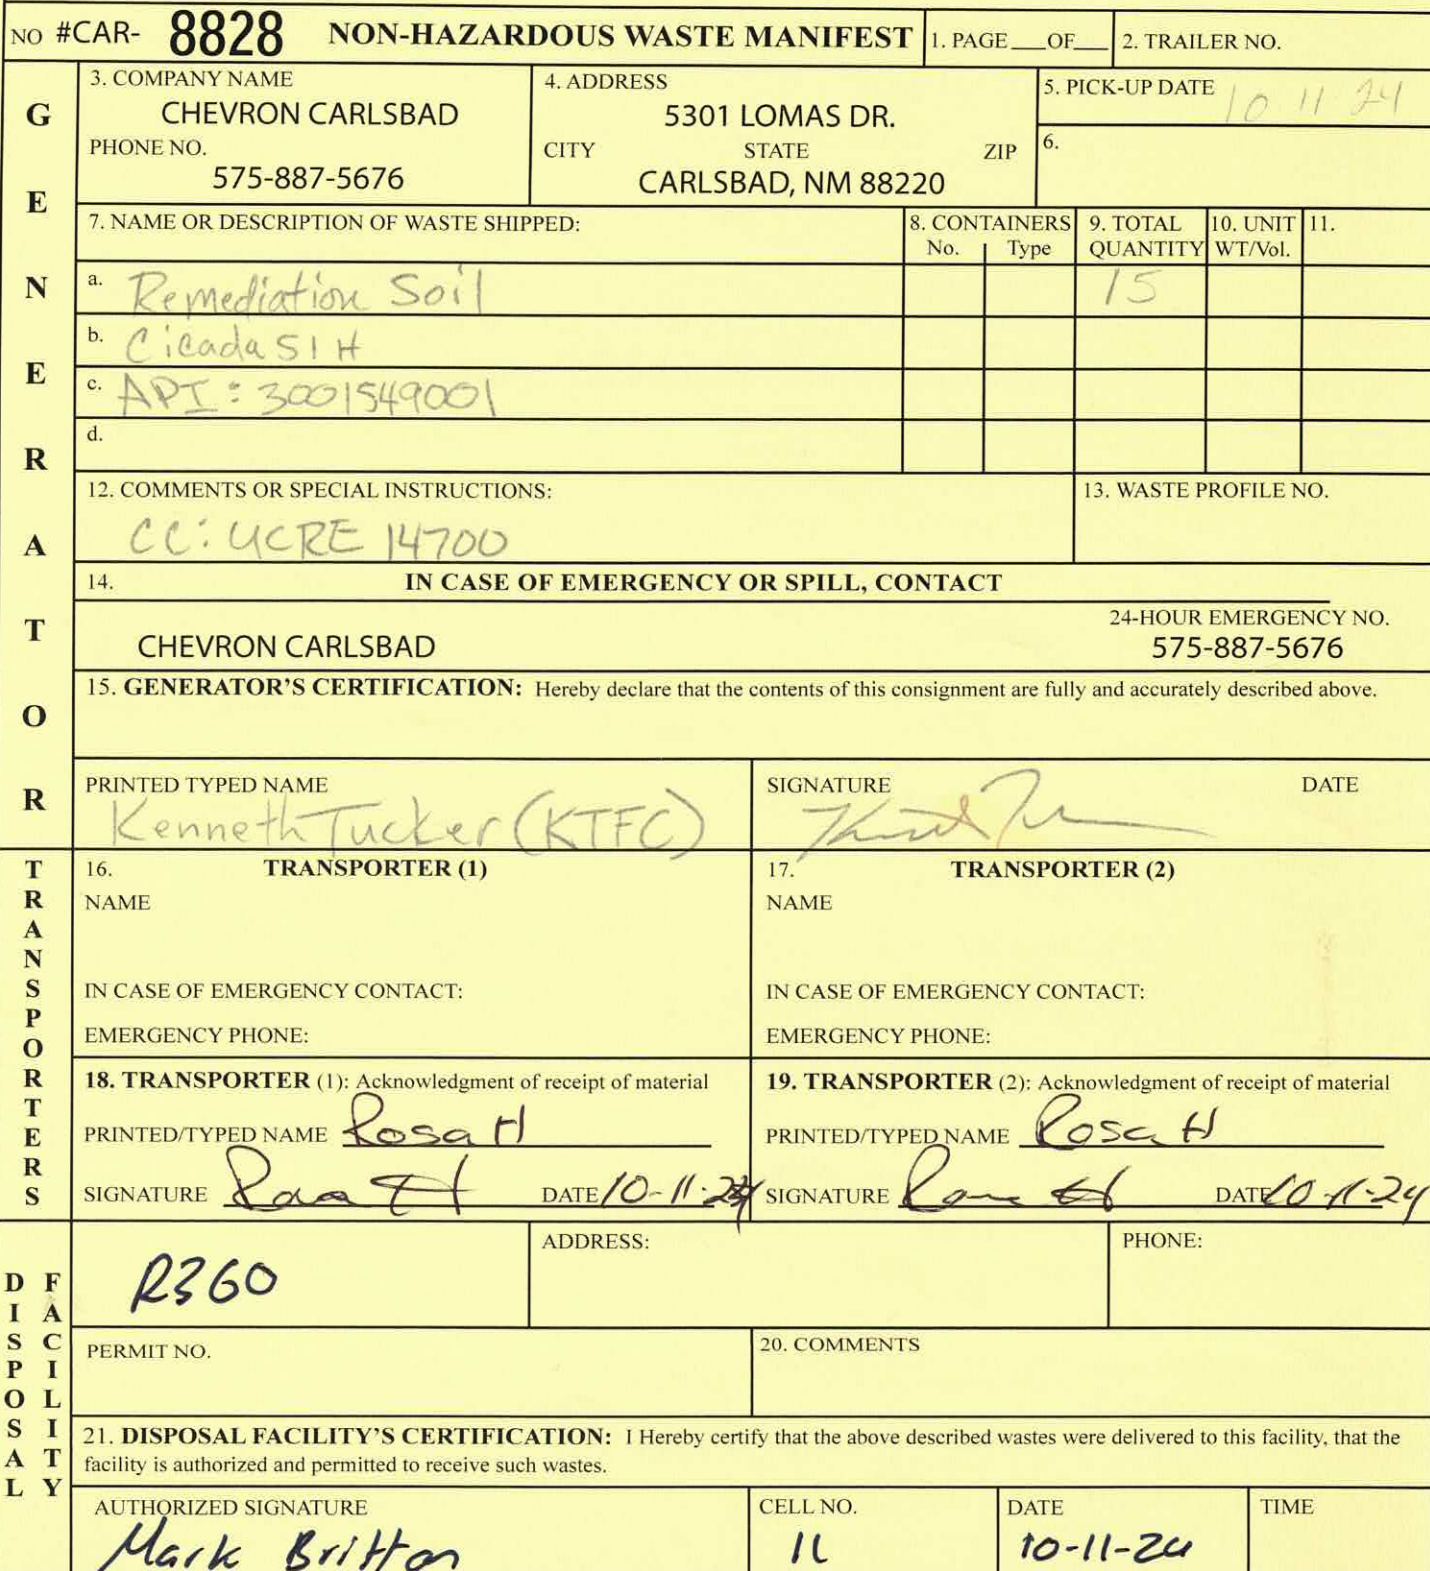 NO #CAR- 8828 NON-HAZARDOUS WASTE MANIFEST 1. PAGE___OF___ 2. TRAILER NO.
GENERATOR
3. COMPANY NAME
CHEVRON CARLSBAD
PHONE NO.
575-887-5676
4. ADDRESS
5301 LOMAS DR.
CITY STATE ZIP
CARLSBAD, NM 88220
5. PICK-UP DATE 10 11 24
6.
7. NAME OR DESCRIPTION OF WASTE SHIPPED:
8. CONTAINERS
No. Type
9. TOTAL
QUANTITY
10. UNIT
WT/Vol.
11.
a. Remediation Soil 15
b. Cicada 51 H
c. API: 3001549001
d.
12. COMMENTS OR SPECIAL INSTRUCTIONS:
CC: UCRE 14700
13. WASTE PROFILE NO.
14. IN CASE OF EMERGENCY OR SPILL, CONTACT
24-HOUR EMERGENCY NO.
CHEVRON CARLSBAD 575-887-5676
15. GENERATOR'S CERTIFICATION: Hereby declare that the contents of this consignment are fully and accurately described above.
PRINTED TYPED NAME
Kenneth Tucker (KTFC)
SIGNATURE DATE
TRANSPORTERS
16. TRANSPORTER (1)
NAME
IN CASE OF EMERGENCY CONTACT:
EMERGENCY PHONE:
17. TRANSPORTER (2)
NAME
IN CASE OF EMERGENCY CONTACT:
EMERGENCY PHONE:
18. TRANSPORTER (1): Acknowledgment of receipt of material
PRINTED/TYPED NAME Rosa H
SIGNATURE Rosa H DATE 10-11-24
19. TRANSPORTER (2): Acknowledgment of receipt of material
PRINTED/TYPED NAME Rosa H
SIGNATURE Rosa H DATE 10-11-24
DISPOSAL FACILITY
R360
ADDRESS:
PHONE:
PERMIT NO.
20. COMMENTS
21. DISPOSAL FACILITY'S CERTIFICATION: I Hereby certify that the above described wastes were delivered to this facility, that the
facility is authorized and permitted to receive such wastes.
AUTHORIZED SIGNATURE
Mark Britton
CELL NO.
11
DATE
10-11-24
TIME